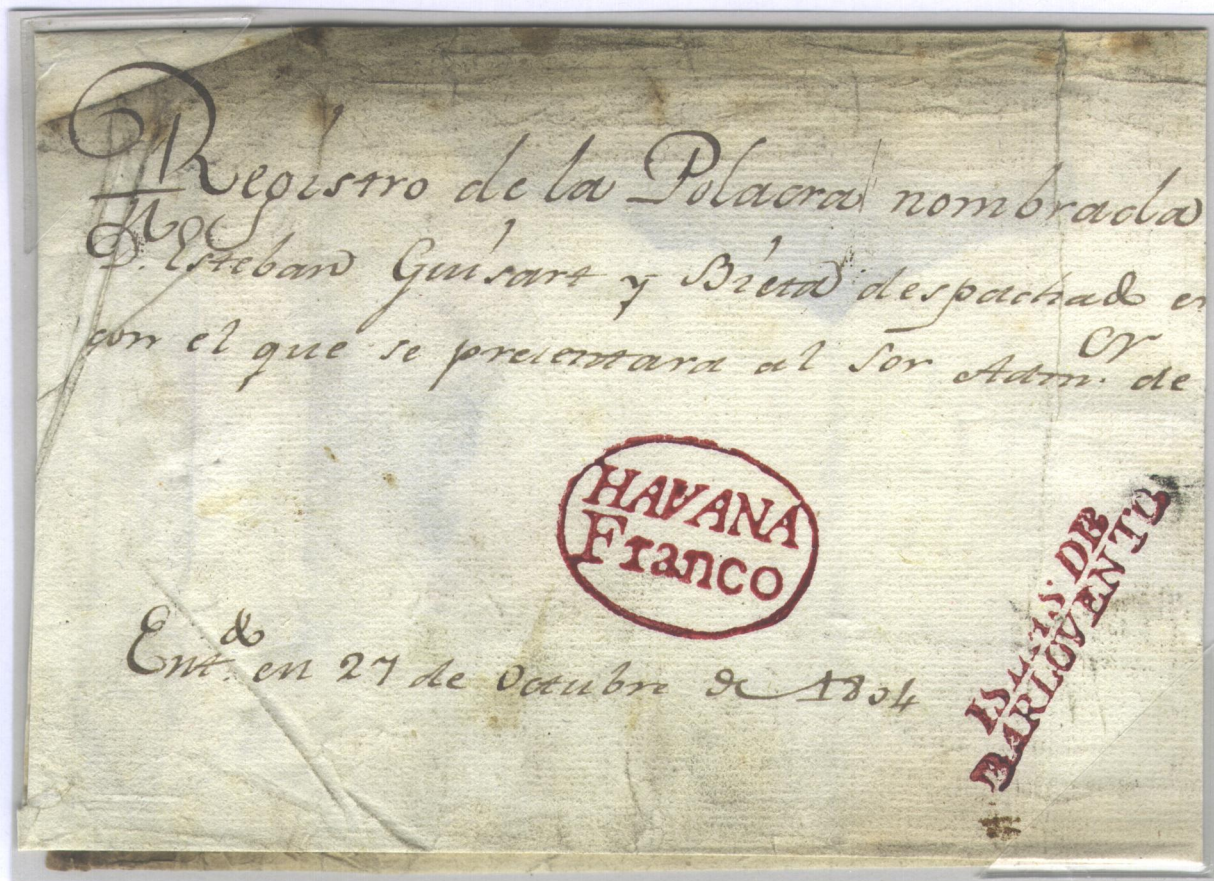 Registro de la Polacra nombrada
D. Esteban Guisart y Bieta despachado en
con el que se presentara al Sor Adm.or de
HAVANA
Franco
ISLAS DE
BARLOVENTO
Ent.do en 27 de Octubre de 1804